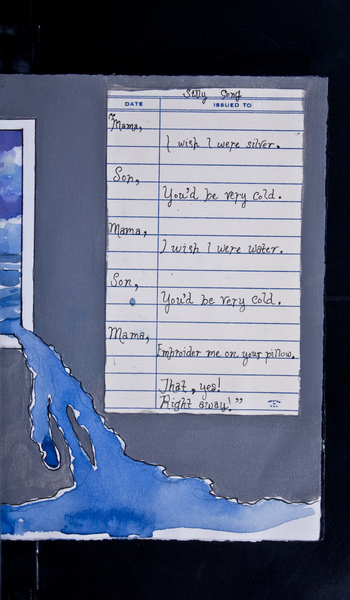 Silly Song
DATE ISSUED TO
Mama,
I wish I were silver.
Son,
You'd be very cold.
Mama,
I wish I were water.
Son,
You'd be very cold.
Mama,
Embroider me on your pillow.
That, yes!
Right away!”